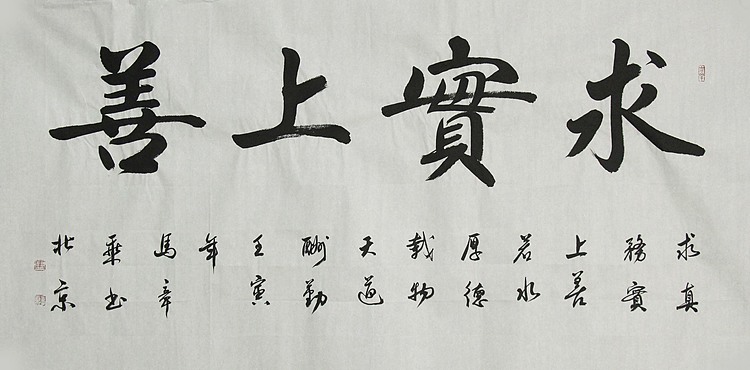 求實上善
求真
務實
上善
若水
厚德
載物
天道
酬勤
壬寅
年
馬章
乘書
北京